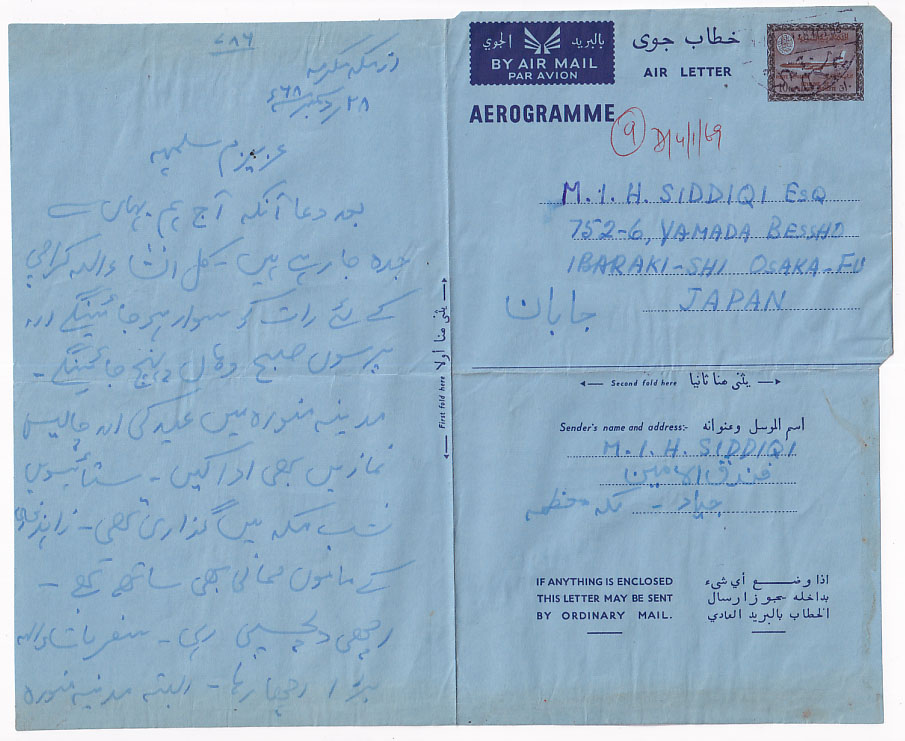 ۷۸۶
از مکہ مکرمہ
۲۸ دسمبر ۶۸ء
عزیزم سلمہ
بعد دعا آنکہ آج ہم یہاں سے
جدہ جا رہے ہیں - کل انشاءاللہ کراچی
کے لئے رات کو سوار ہو جائینگے اور
پرسوں صبح وہاں پہنچ جائینگے -
مدینہ منورہ میں عید کی اور چالیس
نمازیں بھی ادا کیں - ستائیسویں
شب مکہ میں گذاری تھی - زاہد
کے ماموں ممانی بھی ساتھ تھے -
اچھی دلچسپی رہی - سفر ماشاءاللہ
بڑا اچھا رہا - البتہ مدینہ منورہ
بالبريد الجوي
BY AIR MAIL
PAR AVION
خطاب جوى
AIR LETTER
AEROGRAMME
9
4/1/69
M. I. H. SIDDIQI ESQ
752-6, YAMADA BESSHO
IBARAKI-SHI OSAKA-FU
JAPAN
جاپان
First fold here يثنى هنا أولا
Second fold here يثنى هنا ثانيا
Sender's name and address:- اسم المرسل وعنوانه
M. I. H. SIDDIQI
فندق الامين
جیاد - مکہ معظمہ
IF ANYTHING IS ENCLOSED
THIS LETTER MAY BE SENT
BY ORDINARY MAIL.
اذا وضع أي شىء
بداخله يجوز ارسال
الخطاب بالبريد العادي